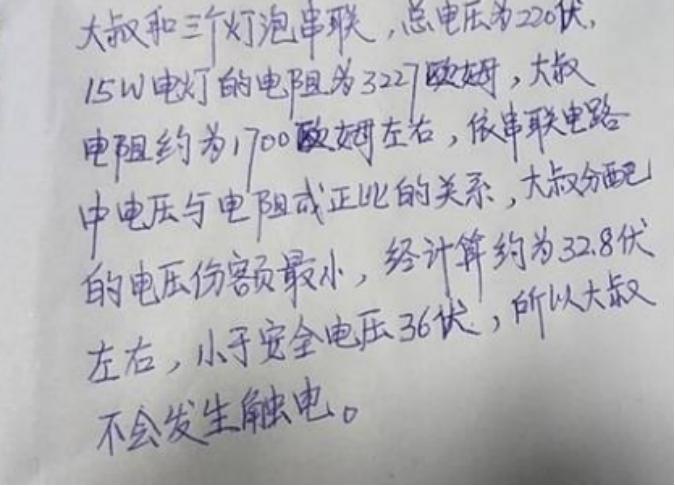 大叔和三个灯泡串联，总电压为220伏，
15W电灯的电阻为3227欧姆，大叔
电阻约为1700欧姆左右，依串联电路
中电压与电阻成正比的关系，大叔分配
的电压份额最小，经计算约为32.8伏
左右，小于安全电压36伏，所以大叔
不会发生触电。